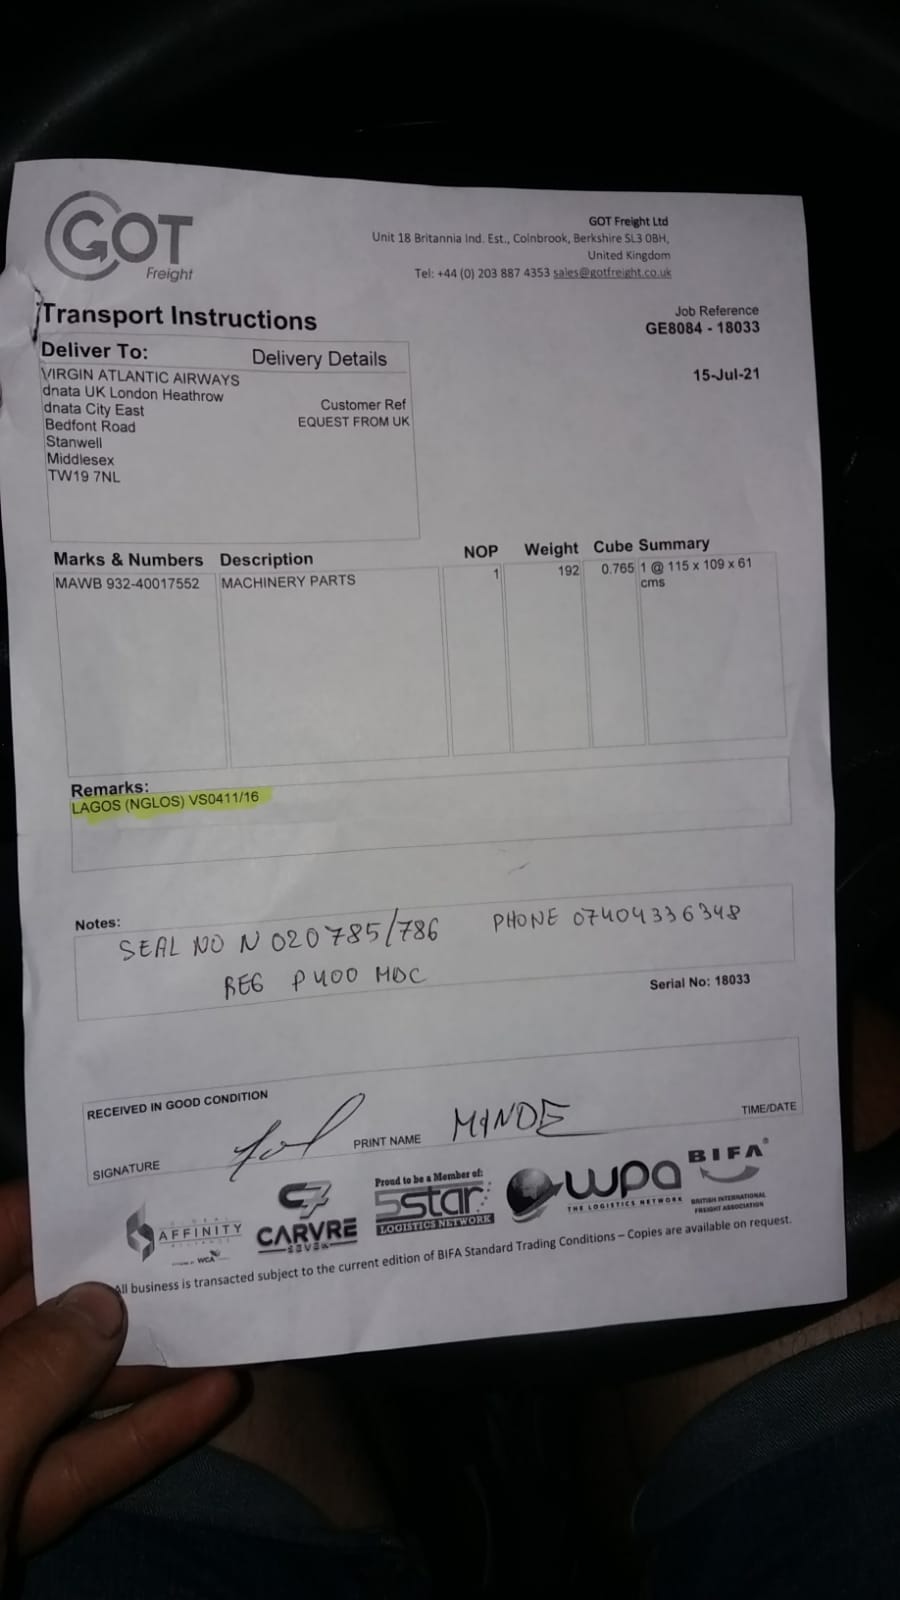 GOT
Freight
GOT Freight Ltd
Unit 18 Britannia Ind. Est., Colnbrook, Berkshire SL3 0BH,
United Kingdom
Tel: +44 (0) 203 887 4353 sales@gotfreight.co.uk
Transport Instructions
Job Reference
GE8084 - 18033
15-Jul-21
Deliver To:
Delivery Details
VIRGIN ATLANTIC AIRWAYS
dnata UK London Heathrow
dnata City East
Bedfont Road
Stanwell
Middlesex
TW19 7NL
Customer Ref
EQUEST FROM UK
Marks & Numbers Description NOP Weight Cube Summary
MAWB 932-40017552 MACHINERY PARTS 1 192 0.765 1 @ 115 x 109 x 61
cms
Remarks:
LAGOS (NGLOS) VS0411/16
Notes:
SEAL NO N 020785/786 PHONE 07404336348
REG P400 MDC
Serial No: 18033
RECEIVED IN GOOD CONDITION
SIGNATURE
PRINT NAME MINDE
TIME/DATE
AFFINITY
WCA
C7
CARVRE
SEVEN
Proud to be a Member of:
5star
LOGISTICS NETWORK
wpa
THE LOGISTICS NETWORK
BIFA
BRITISH INTERNATIONAL
FREIGHT ASSOCIATION
All business is transacted subject to the current edition of BIFA Standard Trading Conditions – Copies are available on request.